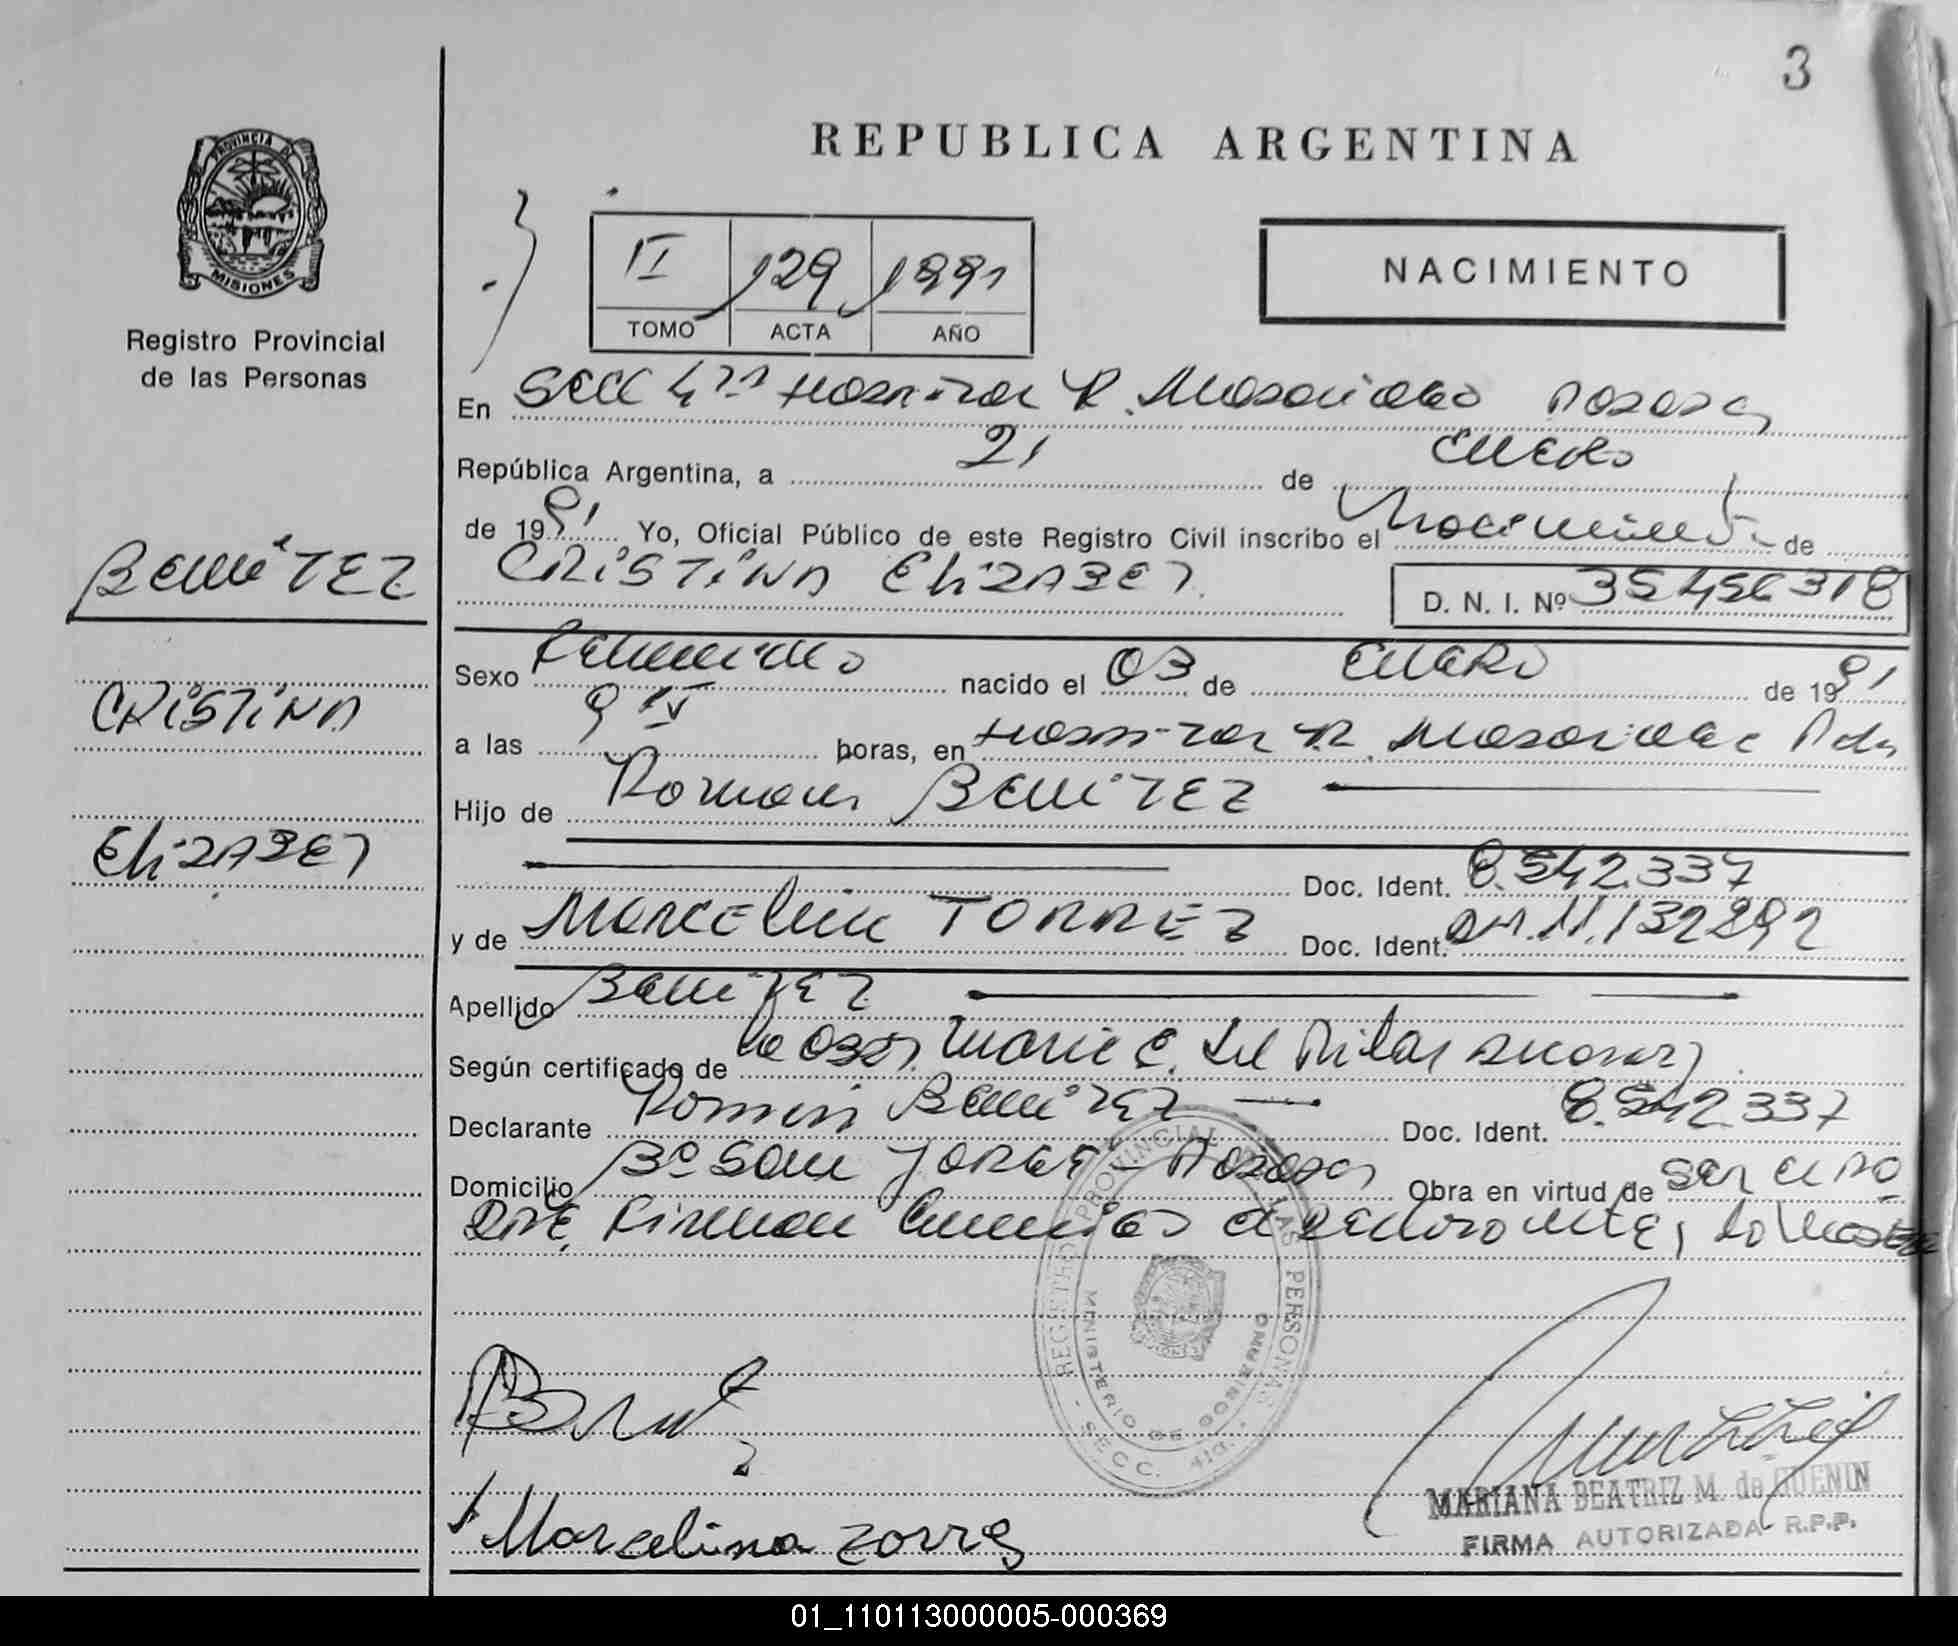 3
REPUBLICA ARGENTINA
PROVINCIA DE
MISIONES
Registro Provincial
de las Personas
II 129 1991
TOMO ACTA AÑO
NACIMIENTO
En SECC 4ta Hospital R. Madariaga Posadas
República Argentina, a 21 de ENERO
de 1991 Yo, Oficial Público de este Registro Civil inscribo el Nacimiento de
BENITEZ
CRISTINA ELIZABET D. N. I. Nº 35456318
Sexo Femenino nacido el 03 de ENERO de 1991
CRISTINA
a las 9 15 horas, en Hospital R. Madariaga Pdas
Hijo de Roman BENITEZ
ELIZABET
Doc. Ident. 8.542.337
y de MARCELINA TORREZ Doc. Ident. 11.132892
Apellido BENITEZ
Según certificado de la Obst. Maria C. del Pilar
Declarante Roman Benitez Doc. Ident. 8.542.337
Domicilio Bº San JORGE - Posadas Obra en virtud de ser el PA
DRE, Firman el Declarante, la Madre
REGISTRO PROVINCIAL DE LAS PERSONAS
MINISTERIO DE GOBIERNO
SECC. 4ta.
Marcelina Torres
MARIANA BEATRIZ M. de GUENIN
FIRMA AUTORIZADA R.P.P.
01_110113000005-000369